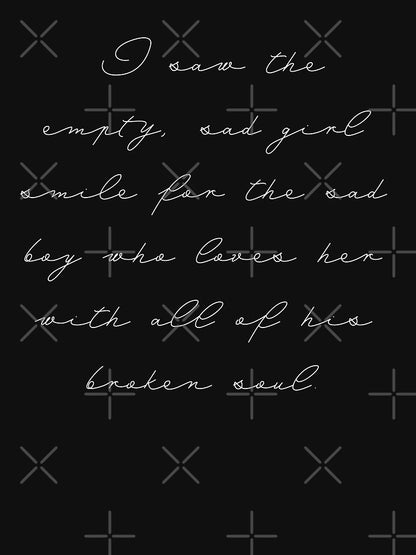 I saw the
empty, sad girl
smile for the sad
boy who loves her
with all of his
broken soul.